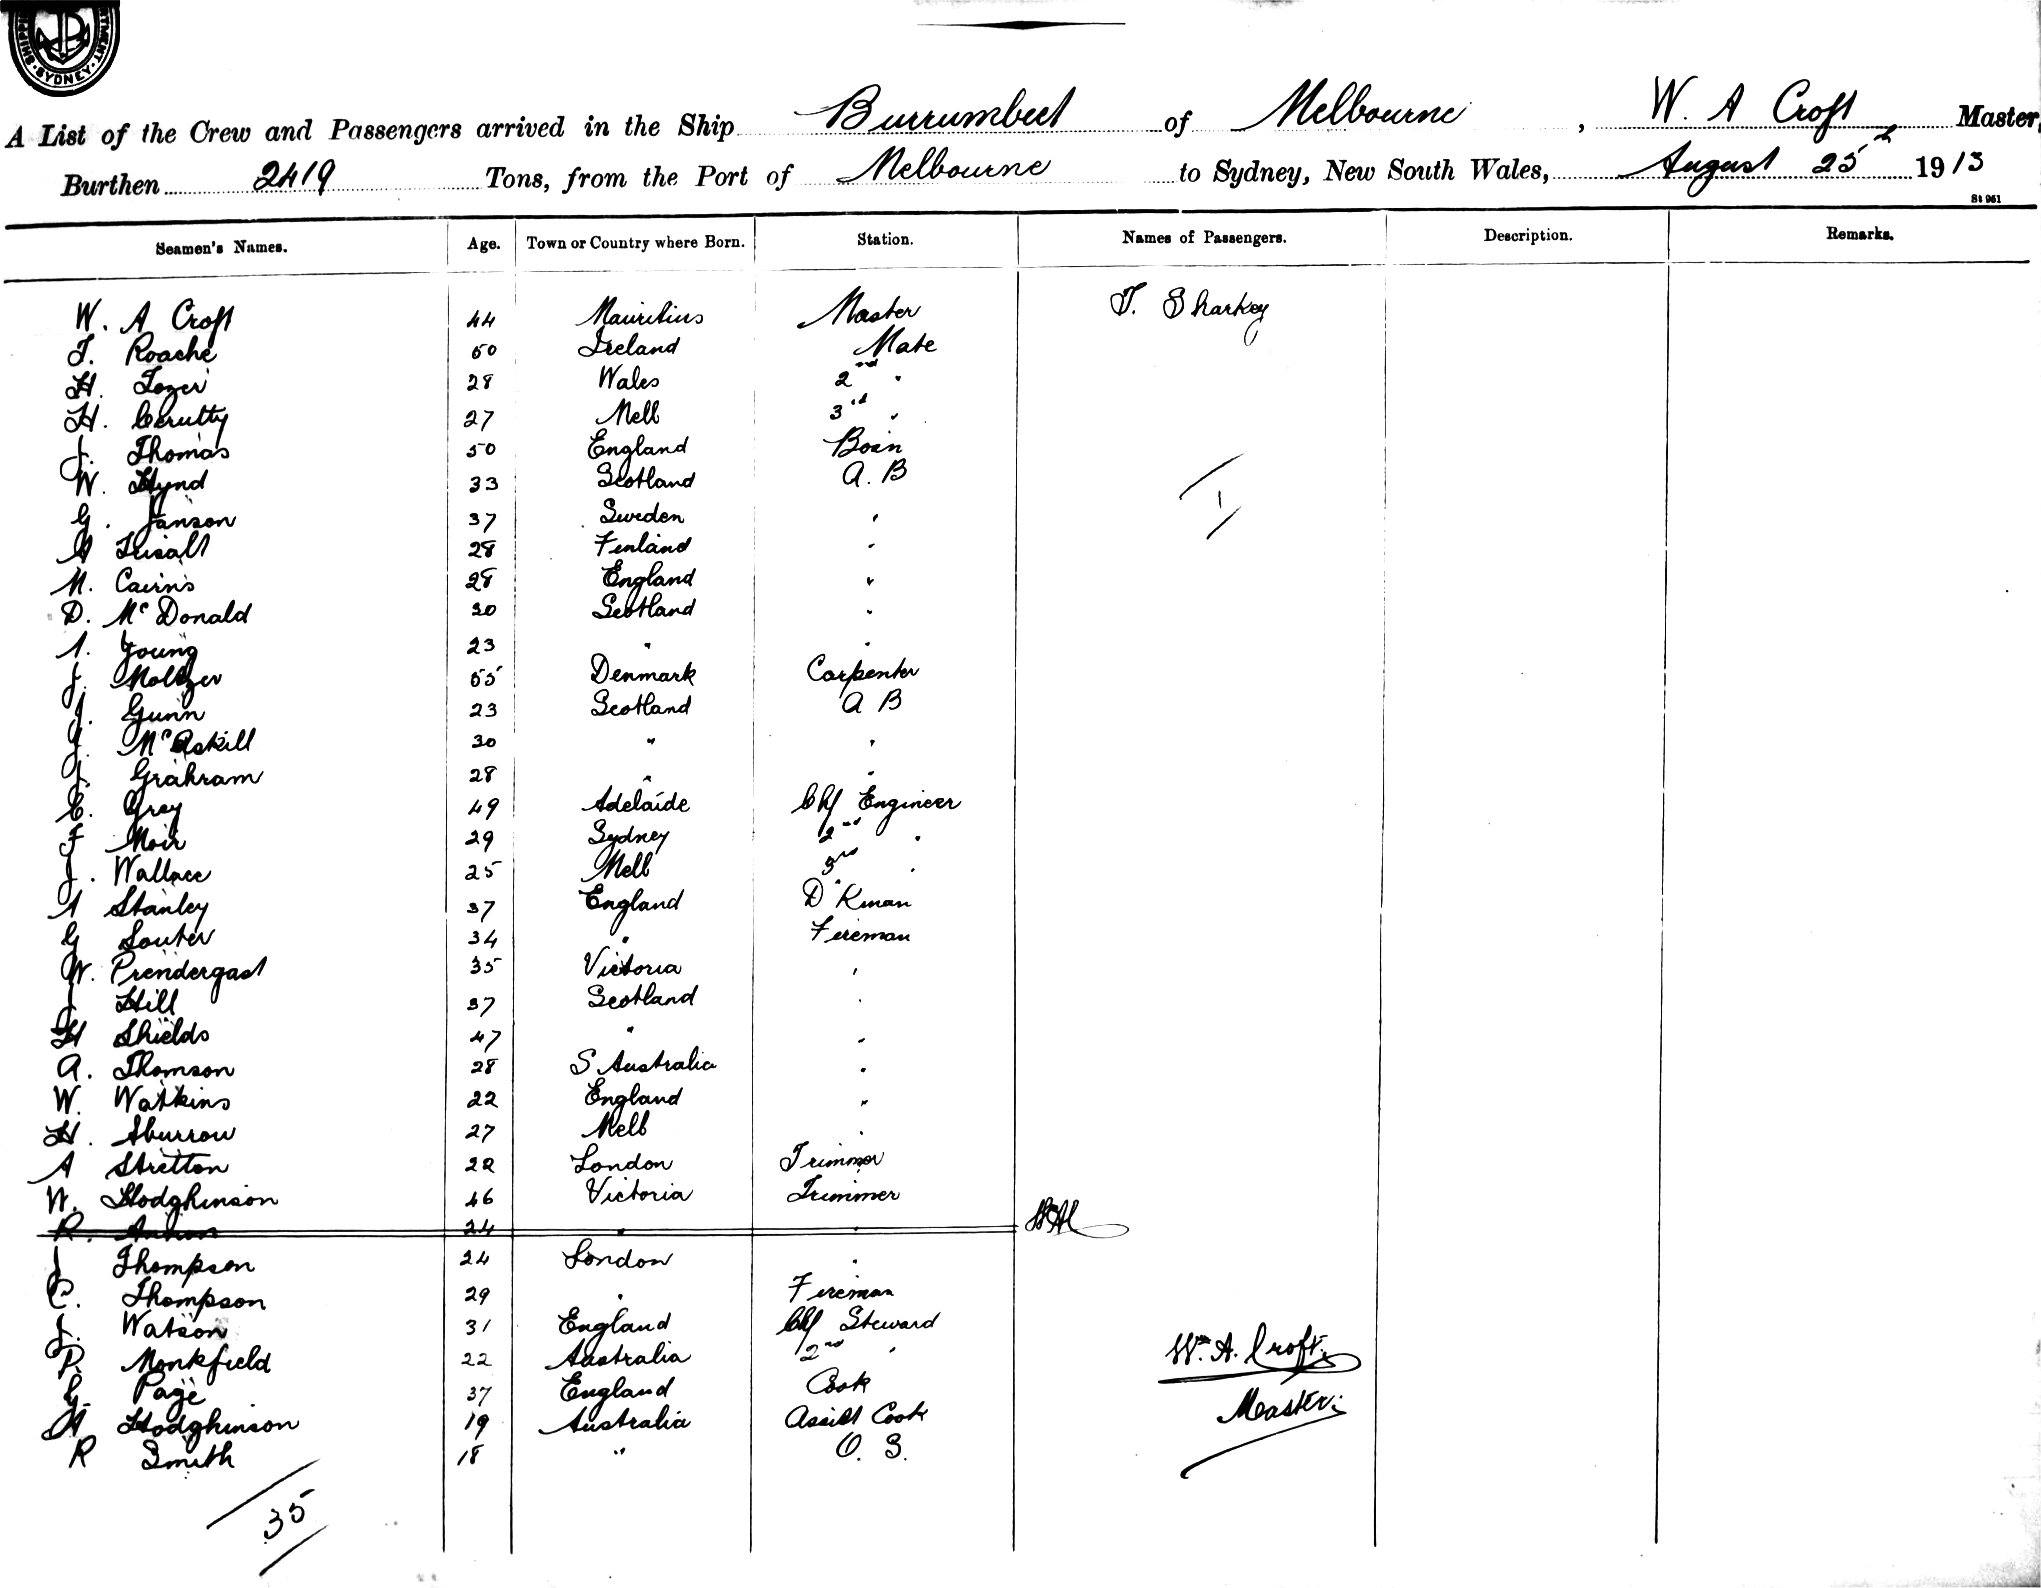 SYDNEY
A List of the Crew and Passengers arrived in the Ship Burrumbeet of Melbourne, W. A Croft, Master,
Burthen 2419 Tons, from the Port of Melbourne to Sydney, New South Wales, August 25th 1913
St 961
Seamen's Names. Age. Town or Country where Born. Station. Names of Passengers. Description. Remarks.
W. A Croft 44 Mauritius Master T. Sharkey
T. Roache 50 Ireland Mate
H. Tozer 28 Wales 2nd "
H. Cerutty 27 Melb 3rd "
J. Thomas 50 England Bosn
W. Hynd 33 Scotland A. B
G. Janson 37 Sweden "
A 28 Finland "
M. Cairns 28 England "
D. McDonald 30 Scotland "
A. Young 23 " "
J. Moltzer 55 Denmark Carpenter
J. Gunn 23 Scotland A B
J. McAskill 30 " "
J. Grahram 28 " "
C. Grey 49 Adelaide Chf Engineer
F Moir 29 Sydney 2nd "
J. Wallace 25 Melb 3rd "
A Stanley 37 England D'Kman
G Souter 34 " Fireman
W. Prendergast 35 Victoria "
J Hill 37 Scotland "
H Shields 47 " "
A. Thomson 28 S Australia "
W. Watkins 22 England "
H. 27 Melb "
A Stretton 22 London Trimmer
W. Hodghinson 46 Victoria Trimmer
R. 24 " "
J Thompson 24 London "
C. Thompson 29 " Fireman
J. Watson 31 England Chf Steward
P. Monkfield 22 Australia 2nd "
G. Page 37 England Cook
A Hodghinson 19 Australia Assist Cook
R Smith 18 " O. S.
1
Wm. A. Croft.
Master.
35